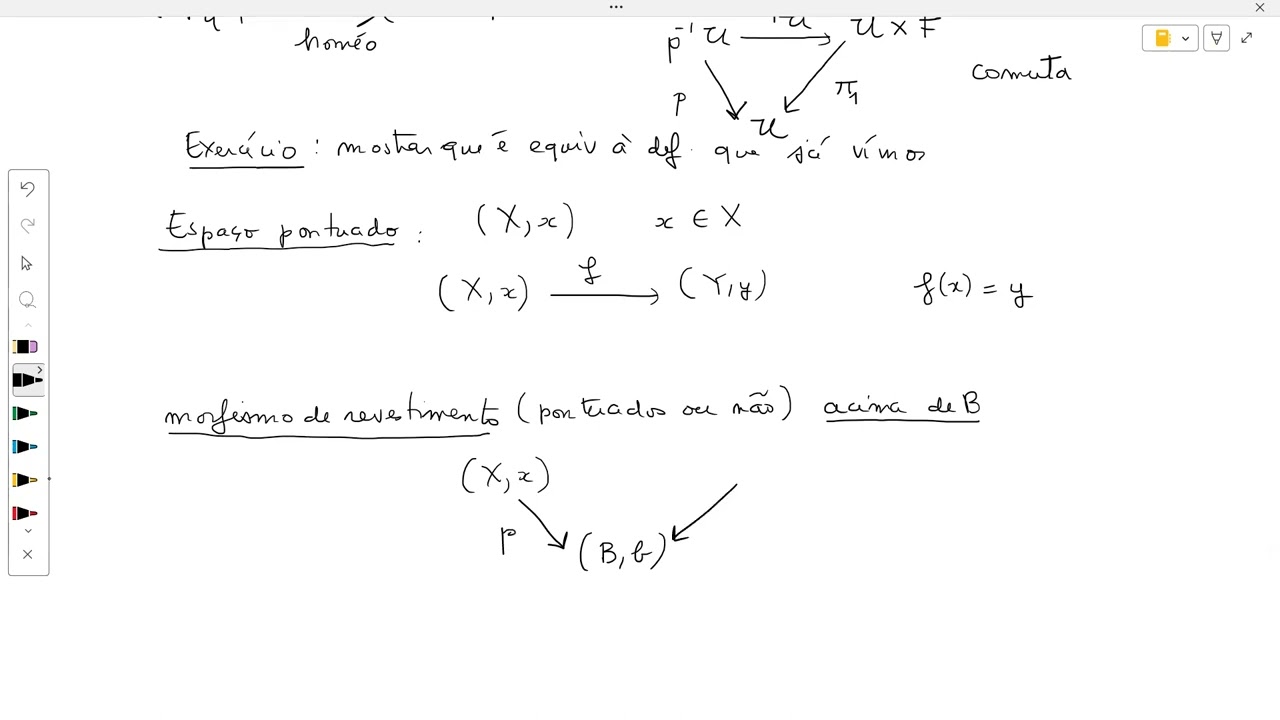 homéo
p⁻¹ U → U × F
comuta
p π₁
U
Exercício : mostrar que é equiv à def. que já vimos
Espaço pontuado : (X, x) x ∈ X
(X, x) f → (Y, y) f(x) = y
morfismo de revestimento (pontuados ou não) acima de B
(X, x)
p (B, b)